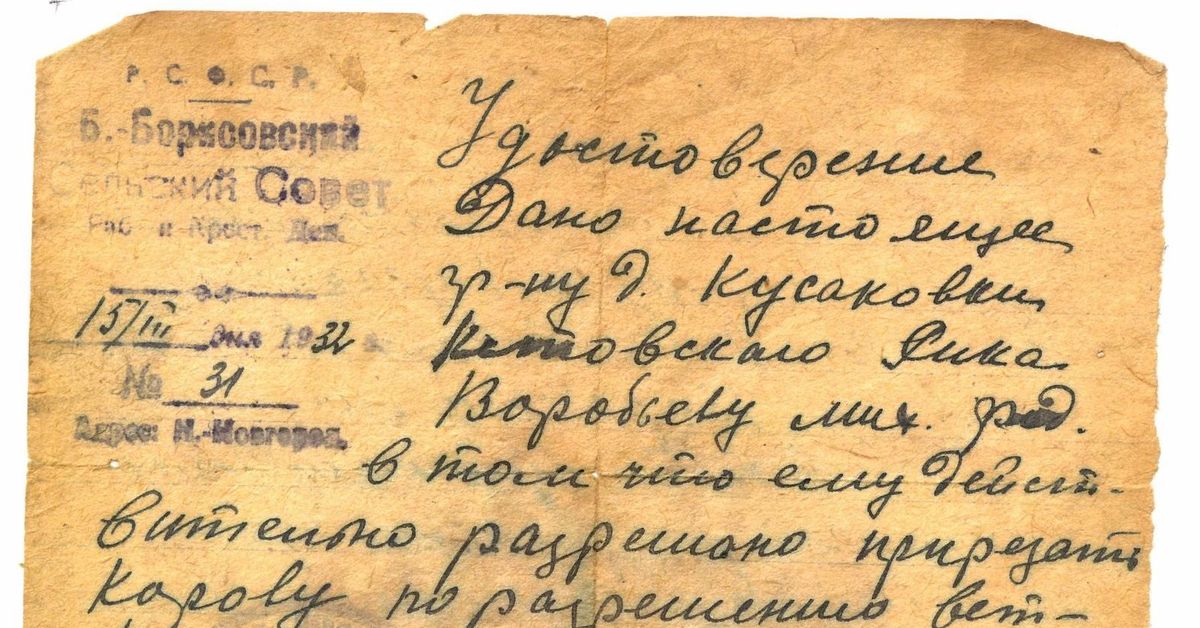 Р. С. Ф. С. Р.
Б.-Борисовский
Сельский Совет
Раб и Крест. Деп.
15/III дня 1932
№ 31
Адрес: Н.-Новгород.
Удостоверение
Дано настоящее
гр-ну д. Кусаковки
Кстовскаго
Воробьеву мих.
в том что ему дейст-
вительно разрешено прирезать
Корову по разрешению вет-